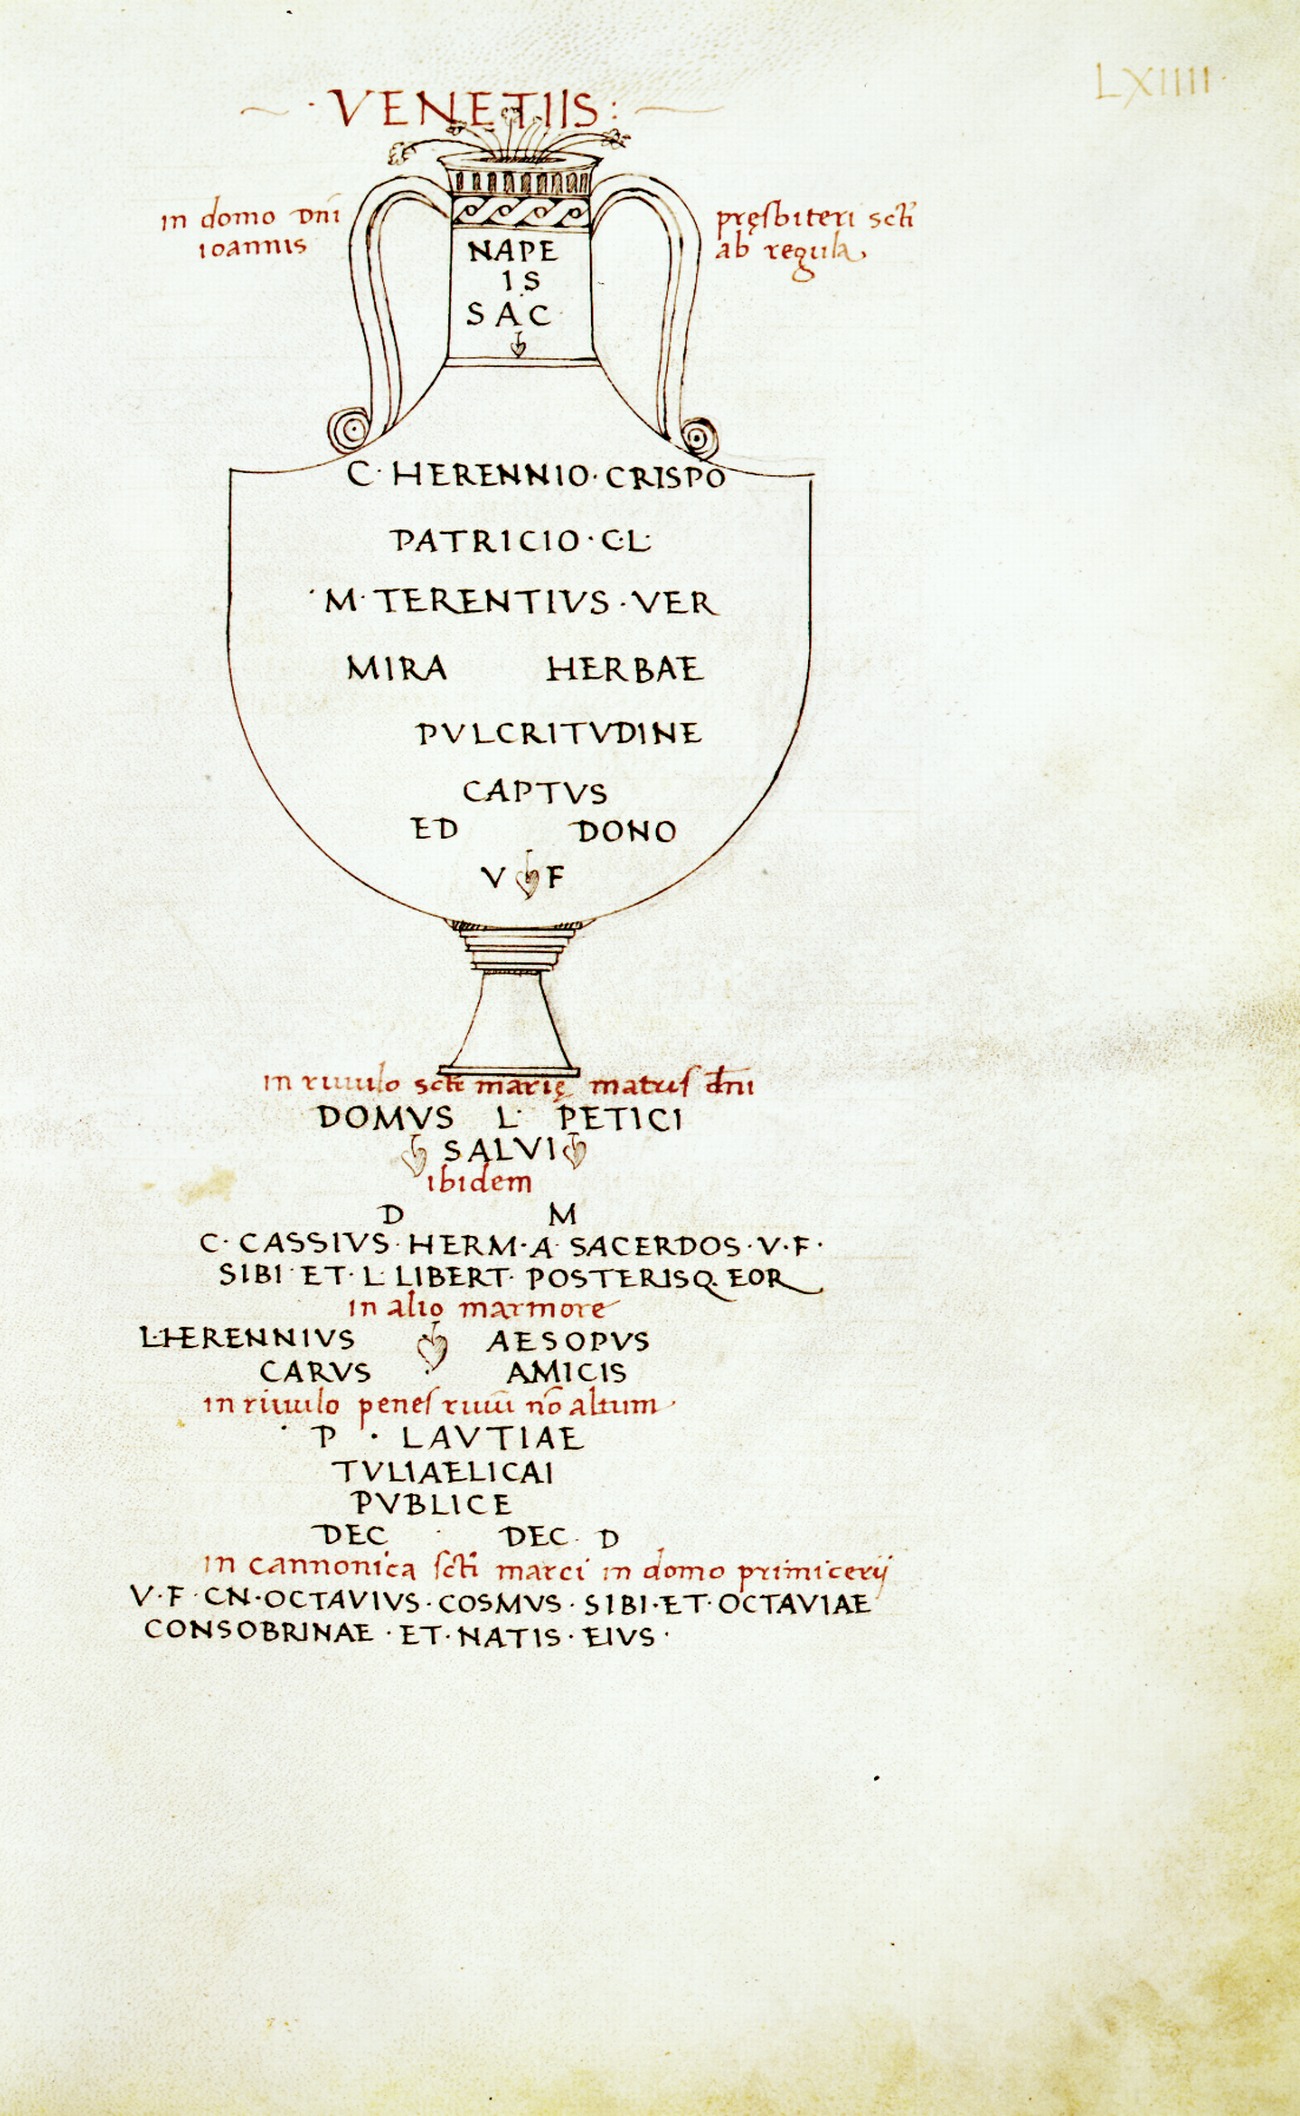 LXIIII
· VENETIIS :
in domo dnī pręsbiteri sctī
ioannis ab regula
NAPE
IS
SAC
C· HERENNIO· CRISPO
PATRICIO · C·L·
· M· TERENTIVS · VER
MIRA HERBAE
PVLCRITVDINE
CAPTVS
ED DONO
V F
in riuulo sctē marię matris dn̄i
DOMVS L· PETICI
SALVI
ibidem
D M
C· CASSIVS· HERM·A· SACERDOS·V·F·
SIBI ET· L· LIBERT· POSTERISQ. EOR
in alio marmore
L·HERENNIVS AESOPVS
CARVS AMICIS
in riuulo penes riuū nō altum
· P · LAVTIAE
TVLIAELICAI
PVBLICE
DEC · DEC· D
in cannonica sctī marci in domo primicerij
V·F· CN·OCTAVIVS·COSMVS·SIBI·ET·OCTAVIAE
CONSOBRINAE ·ET·NATIS·EIVS·